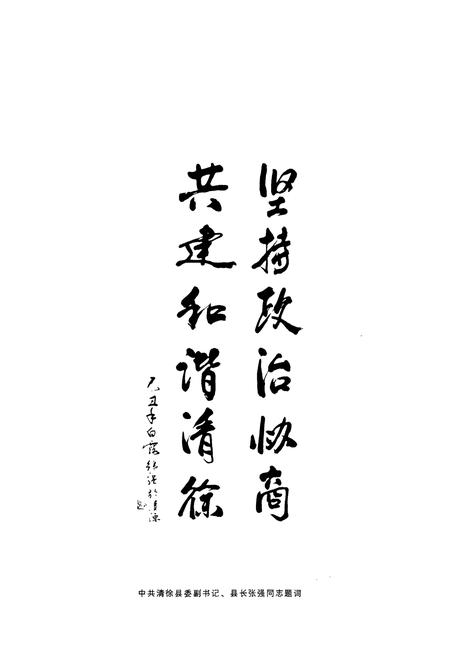 坚持政治协商
共建和谐清徐
己丑年白露张强於清源
中共清徐县委副书记、县长张强同志题词